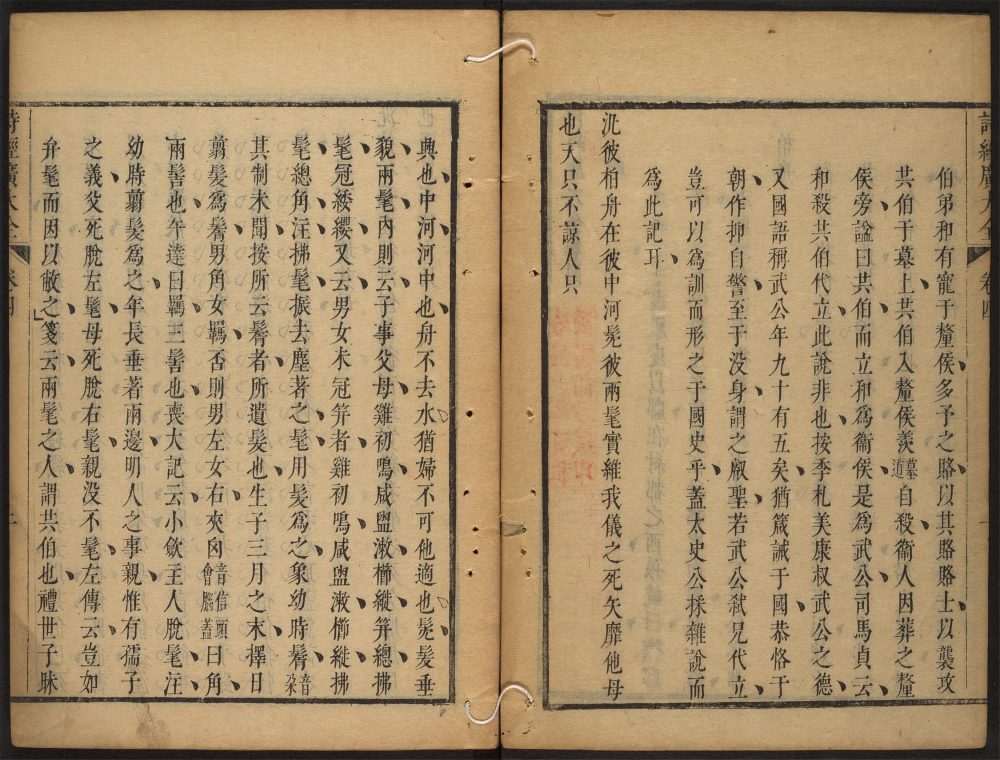 詩經廣大全
卷四
一
伯弟和有寵于釐侯多予之賂以其賂賂士以襲攻
共伯于墓上共伯入釐侯羨墓道自殺衞人因葬之釐
侯旁諡曰共伯而立和爲衞侯是爲武公司馬貞云
和殺共伯代立此說非也按季札美康叔武公之德
又國語稱武公年九十有五矣猶箴誡于國恭恪于
朝作抑自警至于没身謂之叡聖若武公弑兄代立
豈可以爲訓而形之于國史乎蓋太史公採雜說而
爲此記耳
汎彼柏舟在彼中河髧彼兩髦實維我儀之死矢靡他母
也天只不諒人只
典也中河河中也舟不去水猶婦不可他適也髧髮垂
貌兩髦內則云子事父母雞初鳴咸盥漱櫛縰笄總拂
髦冠緌纓又云男女未冠笄者雞初鳴咸盥漱櫛縰拂
髦總角注拂髦振去塵著之髦用髮爲之象幼時鬌音朶
其制未聞按所云鬌者所遺髮也生子三月之末擇日
翦髮爲鬌男角女羈否則男左女右夾囟音信頭會腦蓋曰角
兩髻也午達曰羈三髻也喪大記云小斂主人脫髦注
幼時翦髮爲之年長垂著兩邊明人之事親惟有孺子
之義父死脫左髦母死脫右髦親没不髦左傳云豈如
弁髦而因以敝之箋云兩髦之人謂共伯也禮世子昧
詩經廣大全
卷四